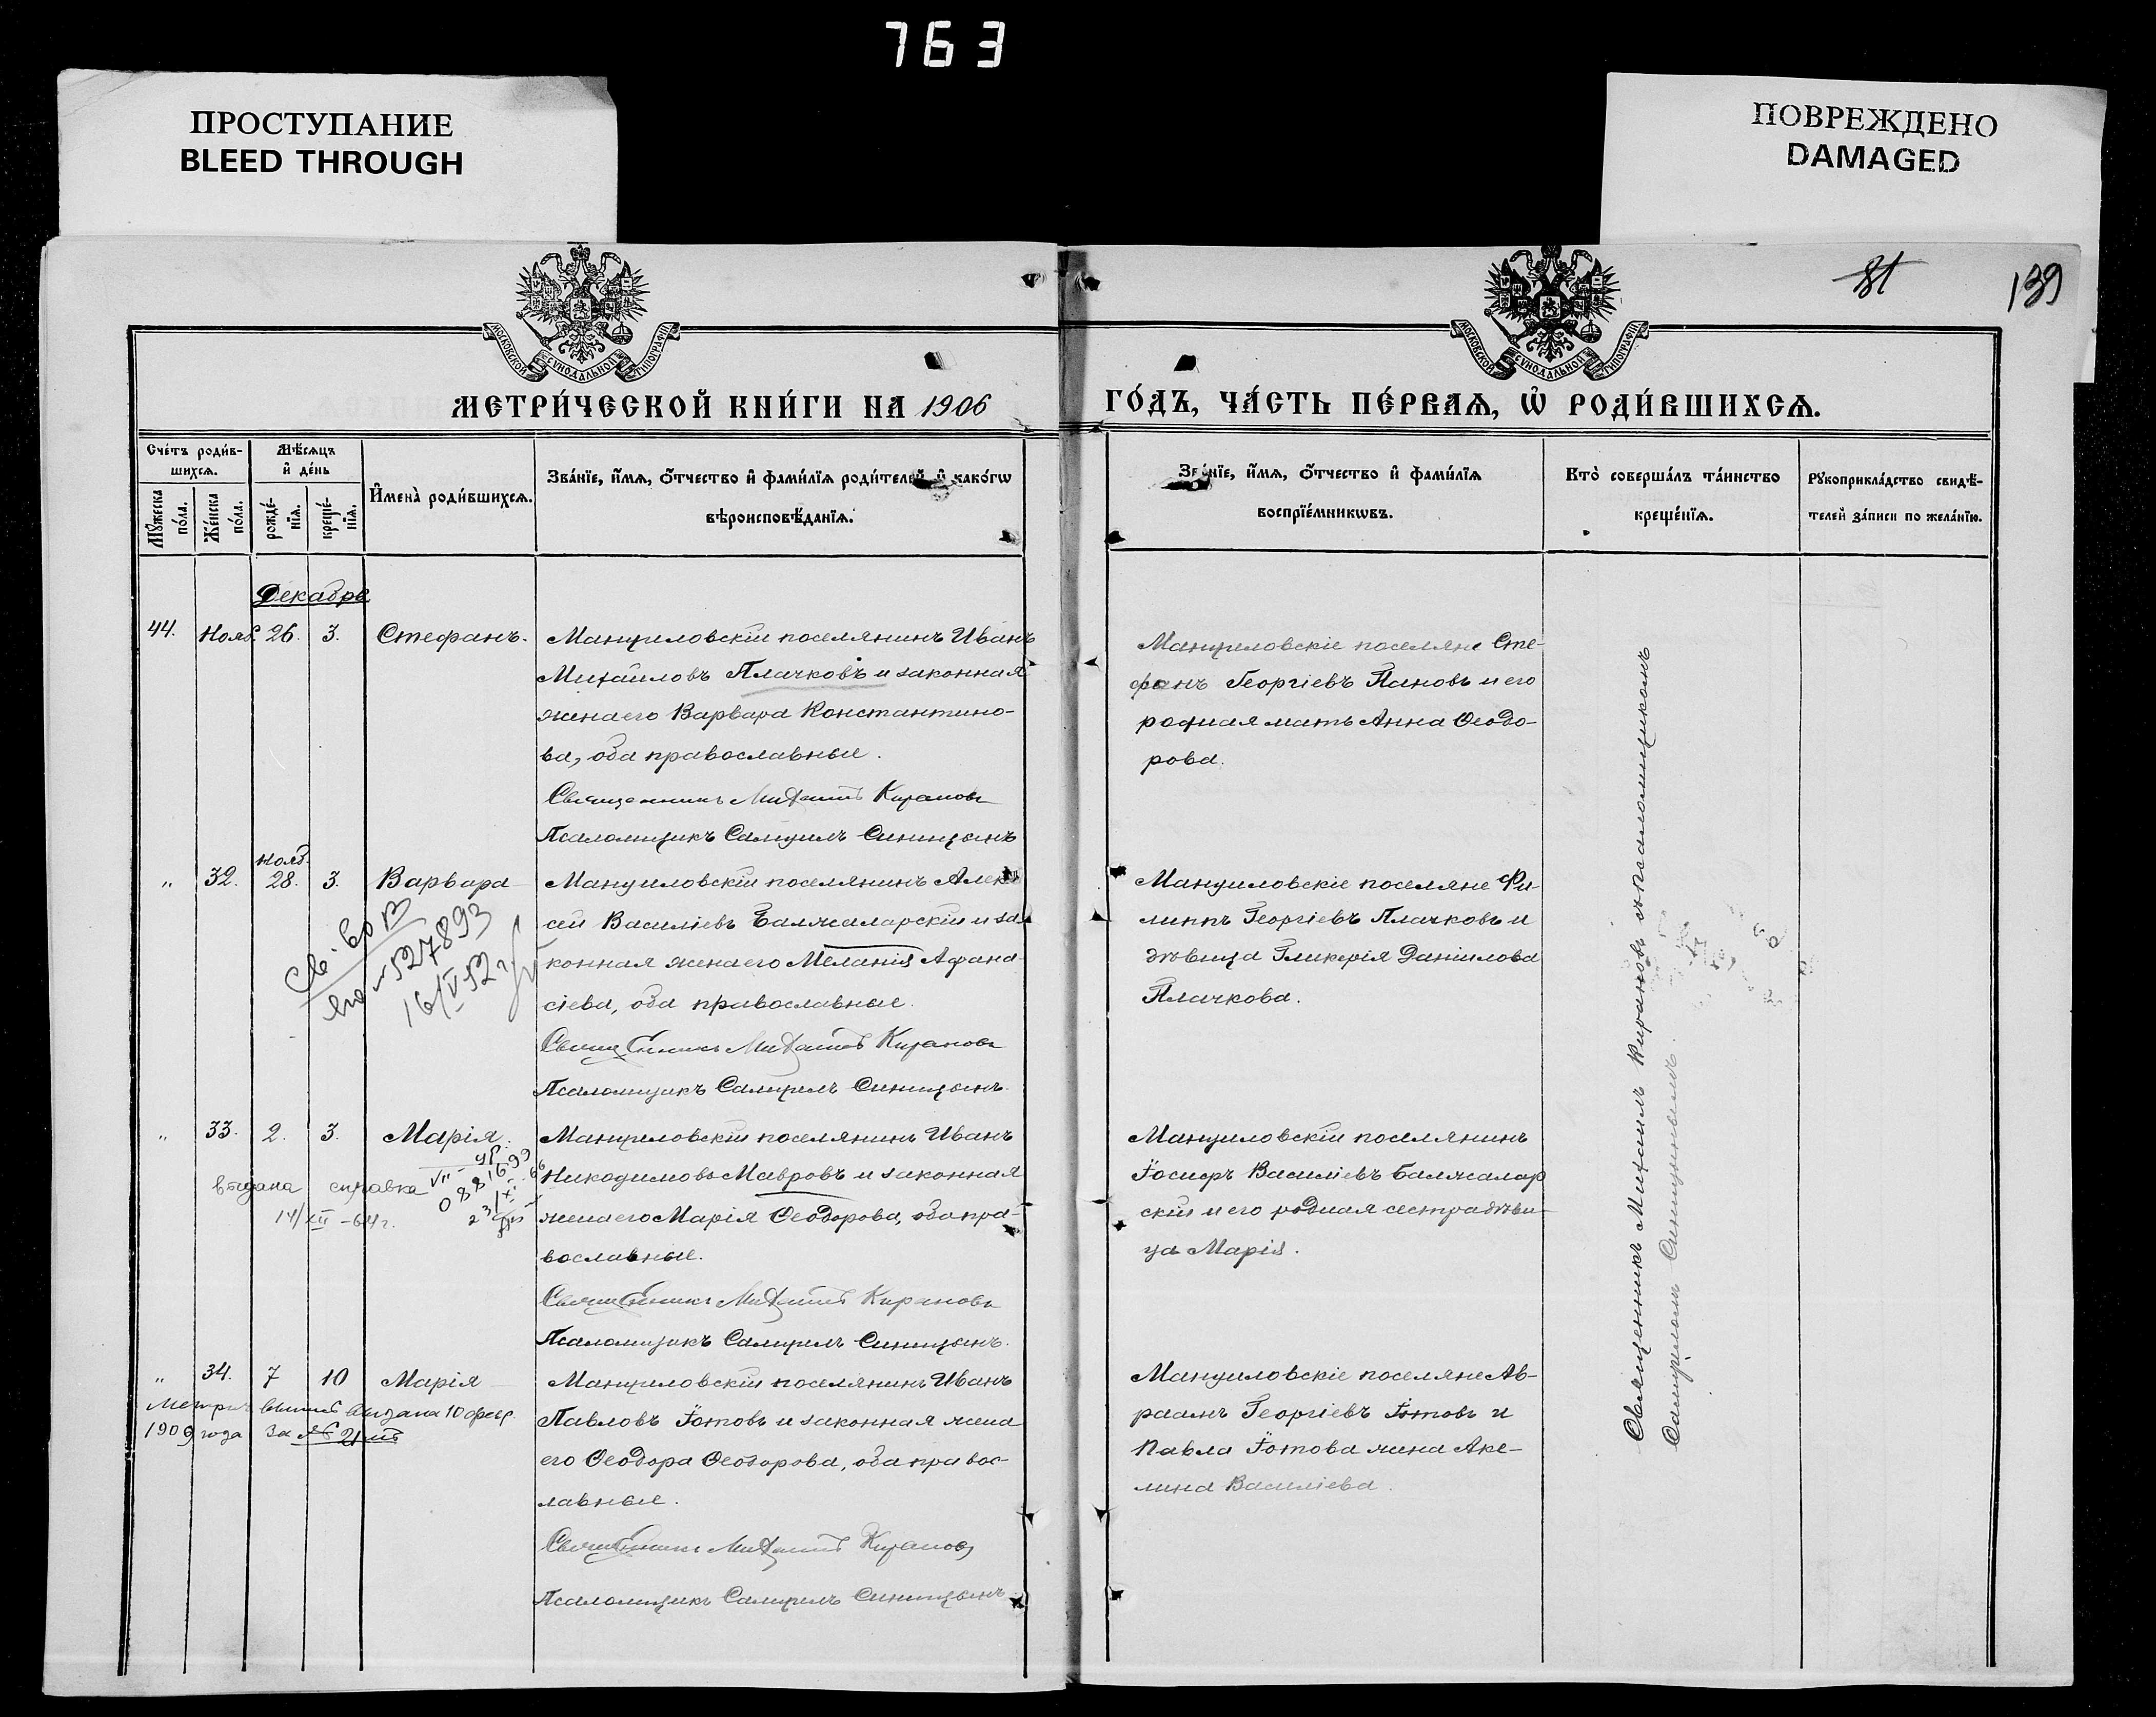 763
ПРОСТУПАНИЕ
BLEED THROUGH
ПОВРЕЖДЕНО
DAMAGED
81
139
МОСКОВСКОЙ СѴНОДАЛЬНОЙ ТИПОГРАФІИ
МОСКОВСКОЙ СѴНОДАЛЬНОЙ ТИПОГРАФІИ
МЕТРИ́ЧЕСКОЙ КНИ́ГИ НА 1906
ГО́ДЪ, ЧА́СТЬ ПЕ́РВАѦ, Ѡ҆ РОДИ́ВШИХСѦ.
Сче́тъ роди́в-
шихсѧ.
Мꙋ́жеска по́ла.
Же́нска по́ла.
Мѣ́сѧцъ
и҆ де́нь
рожде́-нїѧ.
креще́-нїѧ.
И҆мена̀ роди́вшихсѧ.
Зва́нїе, и҆́мѧ, ѻ҆́тчество и҆ фами́лїѧ роди́телей, и҆ како́гѡ
вѣроисповѣ́данїѧ.
Зва́нїе, и҆́мѧ, ѻ҆́тчество и҆ фами́лїѧ
воспрїе́мникѡвъ.
Кто̀ соверша́лъ та́инство
креще́нїѧ.
Рꙋкоприкла́дство свидѣ́-
телей за́писи по жела́нїю.
Декабрь
44. Нояб. 26. 3. Стефанъ.
Мануиловскій поселянинъ Иванъ
Михаиловъ Плачковъ и законная
жена его Варвара Константино-
ва, оба православные.
Священникъ Михаилъ Кирановъ
Псаломщикъ Самуилъ Синицынъ
Мануиловскіе поселяне Сте-
фанъ Георгіевъ Пановъ и его
родная мать Анна Ѳеодо-
рова.
" 32. Нояб. 28. 3. Варвара
Мануиловскій поселянинъ Алек-
сей Василіевъ Балжаларскій и за-
конная жена его Меланія Афана-
сіева, оба православные.
Священникъ Михаилъ Кирановъ
Псаломщикъ Самуилъ Синицынъ.
Св.
527893
16/V-52 г.
Мануиловскіе поселяне Фи-
липпъ Георгіевъ Плачковъ и
дѣвица Гликерія Даніилова
Плачкова.
" 33. 2. 3. Марія.
Мануиловскій поселянинъ Иванъ
Никодимовъ Мавровъ и законная
жена его Марія Ѳеодорова, оба пра-
вославные.
Священникъ Михаилъ Кирановъ
Псаломщикъ Самуилъ Синицынъ.
выдана справка
14/XII -64 г.
Мануиловскій поселянинъ
Іосифъ Василіевъ Балжалар
скій и его родная сестра дѣви-
ца Марія.
" 34. 7 10 Марія
Мануиловскій поселянинъ Иванъ
Павловъ Іотовъ и законная жена
его Ѳеодора Ѳеодорова, оба правос-
лавные.
Священникъ Михаилъ Кирановъ
Псаломщикъ Самуилъ Синицынъ
выдана 10 февр.
1909 года за № 21
Мануиловскіе поселяне Ав-
раамъ Георгіевъ Іотовъ и
Павла Іотова жена Аке-
лина Василіева.
Священникъ Михаилъ Кирановъ съ псаломщикомъ
Самуиломъ Синицынымъ.